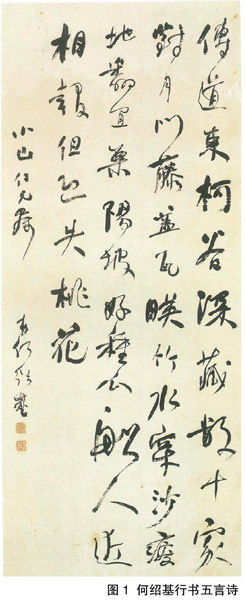 傳道東柯谷深藏數十家
對門藤蓋瓦暎竹水穿沙瘦
地翻宜粟陽坡好種瓜船人近
相報但恐失桃花
小山仁兄屬
弟何紹基
图 1 何绍基行书五言诗